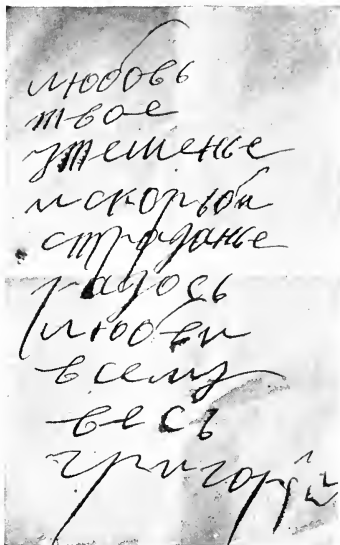 любовь
твое
утешенье
искорьби
страданье
радось
любви
всему
весь
григорий